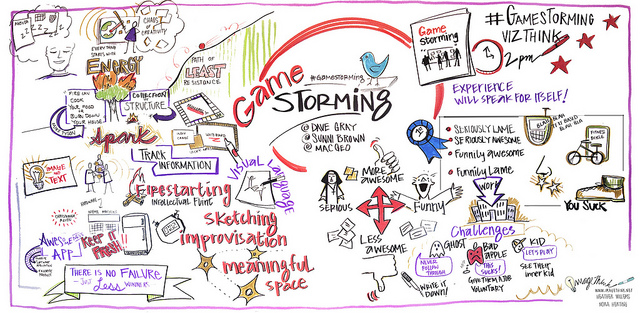 CHAOS
of
CREATIVITY
EVERYTHING
STARTS WITH
ENERGY
FIRE CAN
COOK
YOUR FOOD
or
BURN DOWN
YOUR HOUSE
COLLECTION
STRUCTURE
PATH OF
LEAST
RESISTANCE
Spark
TRACK
INFORMATION
IMAGE
and
TEXT
Firestarting
INTELLECTUAL FLINT
Visual Language
SKetching
improvisation
meaningful
space
AWESOME
APP
KEEP it
FRESH!!
THERE IS NO FAILURE
- JUST Less WONDER.
Game
STORMING
#GAMESTORMING
@ DAVE GRAY
@ SUNNI BROWN
@ MACGEO
Game
storming
#GAMESTORMING
VIZTHINK
2pm
EXPERIENCE
WILL SPEAK FOR ITSELF!
#1
• SERIOUSLY LAME
• SERIOUSLY AWESOME
• Funnily awesome
• Funnily Lame
BLAH
BLAH
BLAH
FITNESS
BIKES
YOU SUCK
MORE
AWESOME
SERIOUS
Funny
LESS
AWESOME
WORK
Challenges
GHOST
NEVER
FOLLOW
THROUGH
WRITE IT
DOWN!
BAD
APPLE
THIS
SUCKS!
GIVE THEM A JOB
VOLUNTARY
KID
LET'S PLAY
SEE THEIR
inner KID
ImageThink
WWW.IMAGETHINK.NET
HEATHER WILLEMS
NORA HERTING